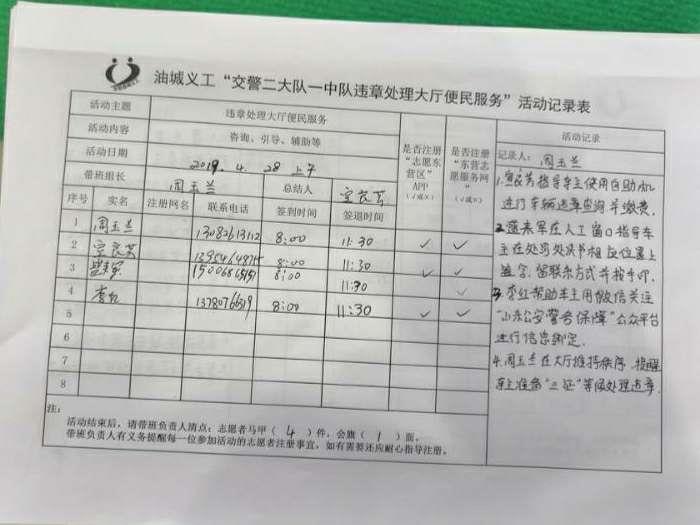 油城义工“交警二大队一中队违章处理大厅便民服务”活动记录表
活动主题 违章处理大厅便民服务
活动内容 咨询、引导、辅助等
活动日期 2019.4.28 上午
带班组长 周玉兰 总结人
序号 实名 注册网名 联系电话 签到时间 签退时间 是否注册“志愿东营区”APP（√或×） 是否注册“东营志愿服务网”（√或×）
1 周玉兰 13082613112 8:00 11:30 √ √
2 8:00 11:30 √ √
3 8:00 11:30 √
4 李红 8:00 11:30 √ √
5
6
7
8
注：
活动结束后，请带班负责人清点：志愿者马甲（ 4 ）件，会旗（ 1 ）面。
带班负责人有义务提醒每一位参加活动的志愿者注册事宜，如有需要还应耐心指导注册。
活动记录
记录人：周玉兰
指导车主使用自助机
进行车辆违章查询并缴费.
在人工窗口指导车
主在处罚决书相应位置上
签字,留联系方式并按手印.
3.李红帮助车主用微信关注
“山东公安警务保障”公众平台
进行信息绑定.
4.周玉兰在大厅维持秩序,提醒
车主准备“三证”等候处理违章.